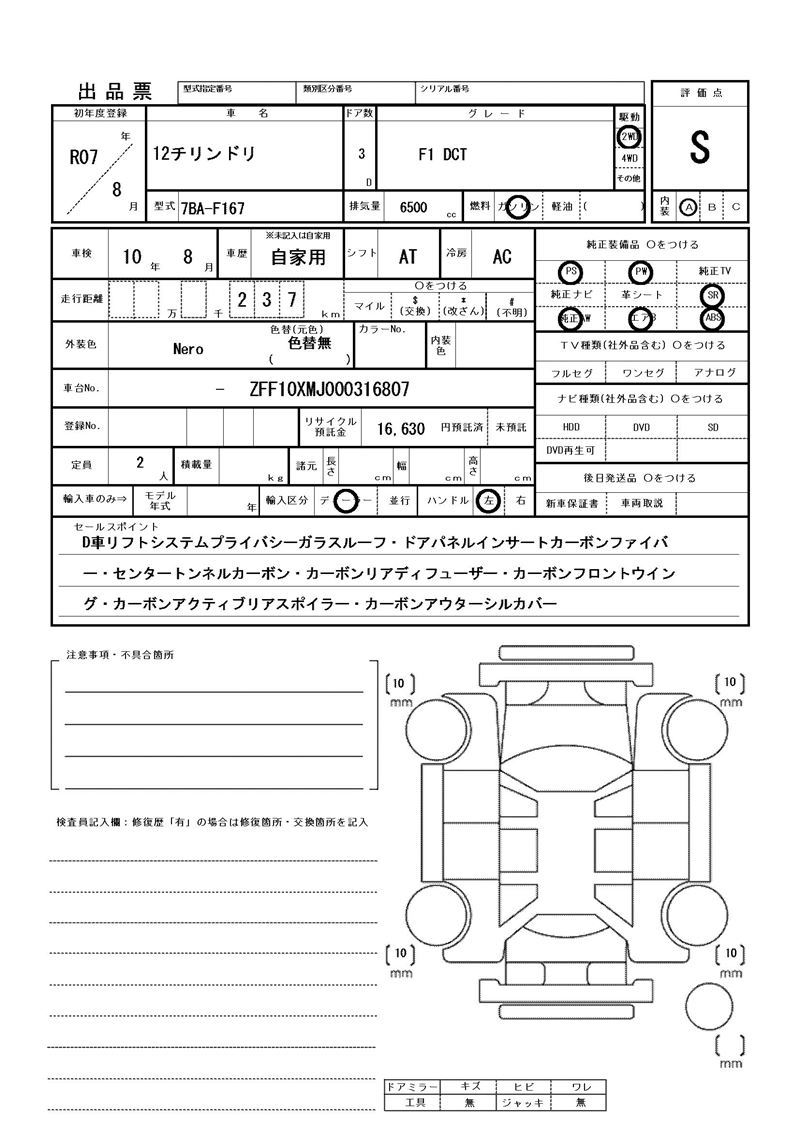 出品票
型式指定番号 類別区分番号 シリアル番号
評価点
初年度登録 車 名 ドア数 グレード 駆動
R07 年 8 月
12チリンドリ
3 D
F1 DCT
2WD
4WD
その他
S
型式 7BA-F167 排気量 6500 cc 燃料 ガソリン 軽油 ( )
内装 A B C
車検 10 年 8 月 車歴 ※未記入は自家用 自家用 シフト AT 冷房 AC
純正装備品 ○をつける
PS PW 純正TV
純正ナビ 革シート SR
純正AW エアB ABS
走行距離 万 千 237 km
○をつける
マイル $(交換) *(改ざん) #(不明)
外装色 Nero 色替(元色) 色替無 ( ) カラーNo. 内装色
TV種類(社外品含む) ○をつける
フルセグ ワンセグ アナログ
車台No. － ZFF10XMJ000316807
ナビ種類(社外品含む) ○をつける
HDD DVD SD
DVD再生可
登録No. リサイクル預託金 16,630 円預託済 未預託
定員 2 人 積載量 kg 諸元 長さ cm 幅 cm 高さ cm
後日発送品 ○をつける
新車保証書 車両取説
輸入車のみ⇒ モデル年式 年 輸入区分 ディーラー 並行 ハンドル 左 右
セールスポイント
D車リフトシステムプライバシーガラスルーフ・ドアパネルインサートカーボンファイバ
ー・センタートンネルカーボン・カーボンリアディフューザー・カーボンフロントウイン
グ・カーボンアクティブリアスポイラー・カーボンアウターシルカバー
注意事項・不具合箇所
[10] mm
[10] mm
検査員記入欄：修復歴「有」の場合は修復箇所・交換箇所を記入
[10] mm
[10] mm
[ ] mm
ドアミラー キズ ヒビ ワレ
工具 無 ジャッキ 無